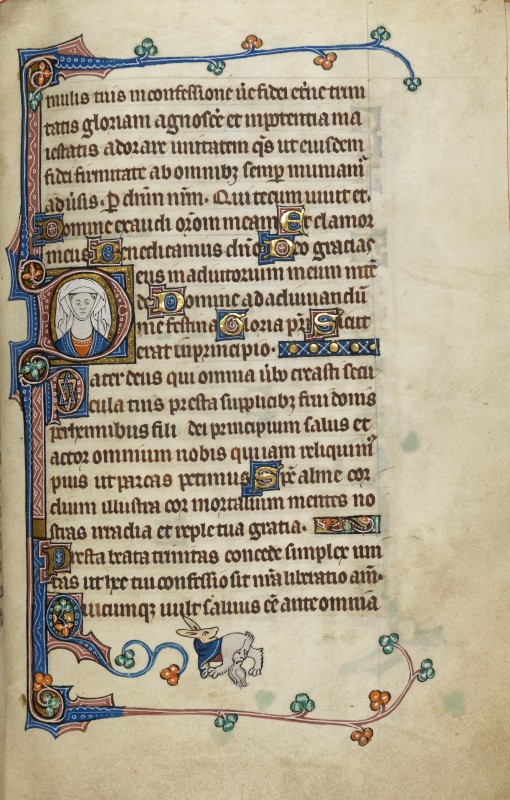 36
mulis tuis in confessione ūe fidei etn̄e trini
tatis gloriam agnosce᷒ et in potentia ma
iestatis adorare unitatem qs̄ ut eiusdem
fidei firmitate ab omnibꝫ semp̱ muniam᷒
aduͥsis. P̱ dn̄m nr̄m. Qui tecum uiuit et.
Domine exaudi orōm meam Et clamor
meus Benedicamus dn̄o Deo gracias
Deus in adiutorium meum inte᷒
de Domine ad adiuuandū
me festina Gloria pr̄i Sicut
erat in principio.
Pater deus qui omnia ūbo creasti secu
cula tuis presta supplicibꝫ frui donis
perhennibus fili dei principium salus et
actor omnium nobis quiuam reliquim᷒
pius ut parcas petimus Sp̄c alme cor
dium illustra cor mortalium mentes no
stras irradia et reple tua gratia.
Presta beata trinitas concede simplex uni
tas ut hec tui confessio sit nr̄a liberatio am̄.
Quicunqꝫ uult saluus eē ante omnia